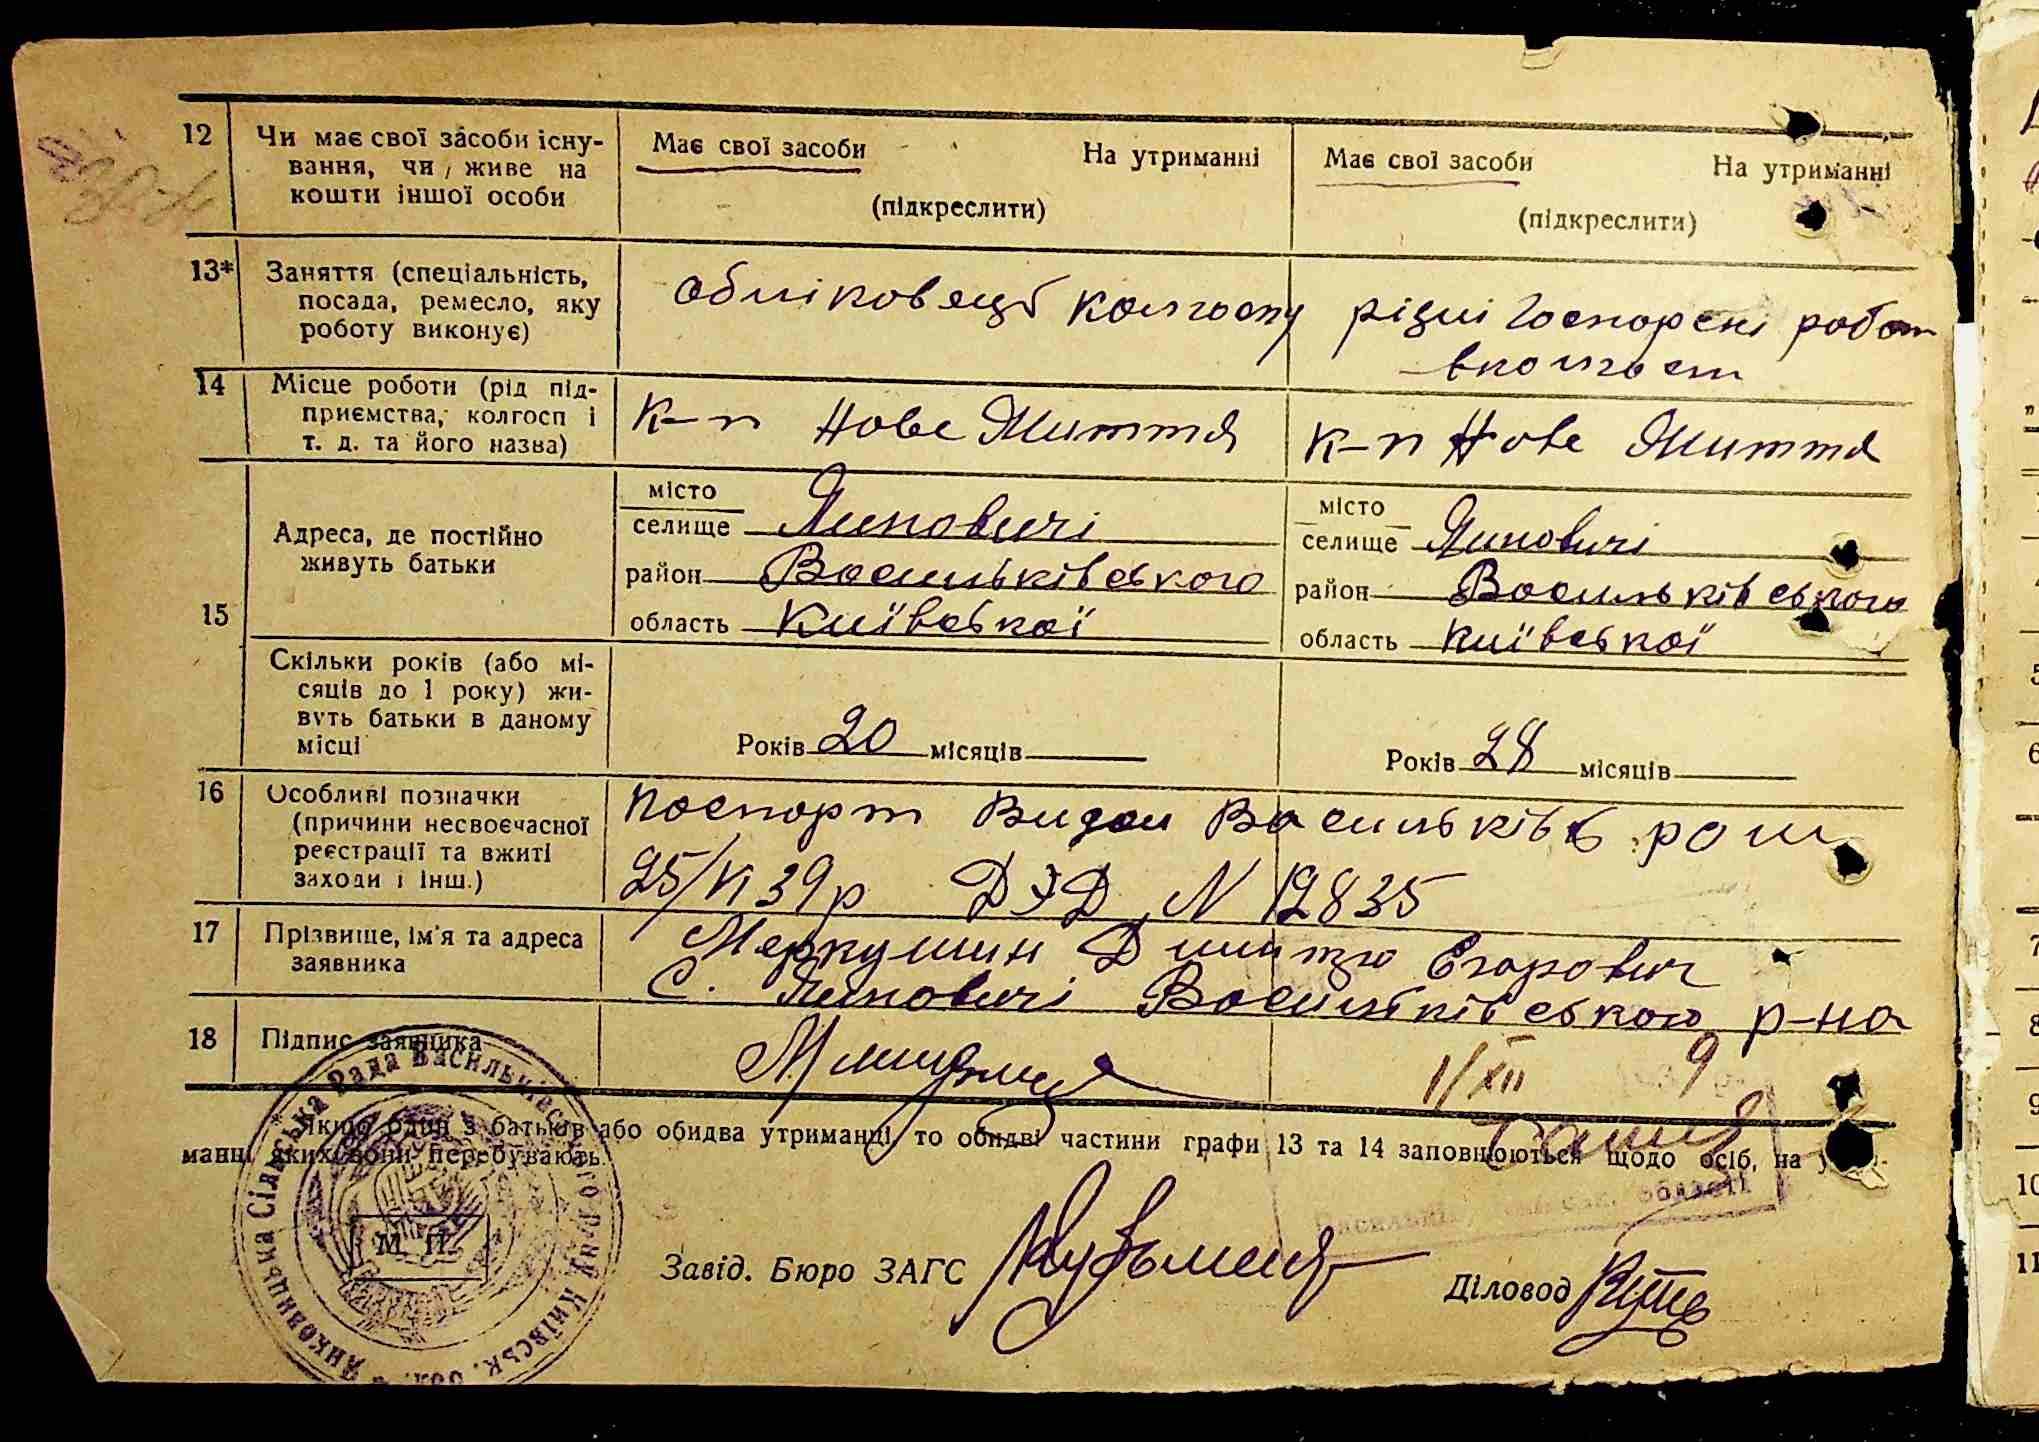 12 Чи має свої засоби існу-
вання, чи живе на
кошти іншої особи
Має свої засоби На утриманні
(підкреслити)
Має свої засоби На утриманні
(підкреслити)
13* Заняття (спеціальність,
посада, ремесло, яку
роботу виконує)
обліковець колгоспу
різні Господрські робот
в колгосп
14 Місце роботи (рід під-
приємства, колгосп і
т. д. та його назва)
К-п Нове Життя
К-п Нове Життя
15 Адреса, де постійно
живуть батьки
місто
селище Янковичі
район Васильківського
область Київської
місто
селище Янковичі
район Васильківського
область Київської
Скільки років (або мі-
сяців до 1 року) жи-
вуть батьки в даному
місці
Років 20 місяців
Років 28 місяців
16 Особливі позначки
(причини несвоєчасної
реєстрації та вжиті
заходи і інш.)
Паспорт Видан Васильків
25/VI 39р ДЭД N 12835
17 Прізвище, ім'я та адреса
заявника
Меркушин Дмитро Егорович
с. Янковичі Васильківського р-на
18 Підпис заявника
1/XII 9
Якщо один з батьків або обидва утриманці, то обидві частини графи 13 та 14 заповнюються щодо осіб, на утри-
манні яких вони перебувають.
М. П.
Завід. Бюро ЗАГС
Діловод
Янковицька Сільська Рада Васильківського р-ну Київськ. обл.
області